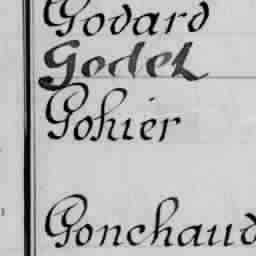 Godard
Godet
Gohier
Gonchaud